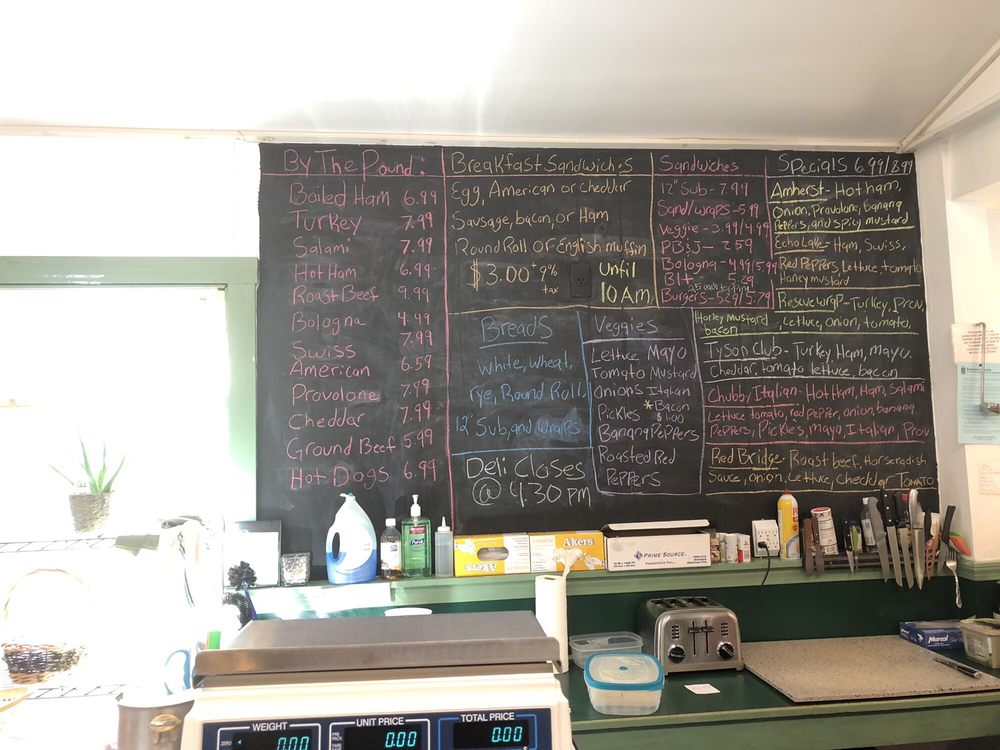 By The Pound:
Boiled Ham 6.99
Turkey 7.99
Salami 7.99
Hot Ham 6.99
Roast Beef 9.99
Bologna 4.49
Swiss 7.99
American 6.59
Provolone 7.99
Cheddar 7.99
Ground Beef 5.99
Hot Dogs 6.99
Breakfast Sandwiches
Egg, American or cheddar
Sausage, bacon, or Ham
Round Roll or English muffin
$3.00 + 9% tax
Until
10 Am
Breads
White, wheat,
rye, Round Roll,
12" Sub, and wraps
Deli Closes
@ 4:30 PM
Veggies
Lettuce Mayo
Tomato Mustard
Onions Italian
Pickles *Bacon
$1.00
Banana Peppers
Roasted Red
Peppers
Sandwiches
12" Sub - 7.99
Sand/wraps - 5.99
Veggie - 3.99/4.99
PB&J - 2.59
Bologna - 4.99/5.99
Blt - 5.29
Burgers - 5.29/5.79
Specials 6.99/8.99
Amherst - Hot ham,
Onion, Provolone, banana
Peppers, and spicy mustard
Echo Lake - Ham, Swiss,
Red Peppers, Lettuce, tomato
Honey mustard
Rescue wrap - Turkey, Prov,
Honey mustard
bacon, Lettuce, onion, tomato,
Tyson Club - Turkey, Ham, mayo,
Cheddar, tomato lettuce, bacon
Chubby Italian - Hot Ham, Ham, Salami
Lettuce tomato, red pepper, onion, banana
Peppers, Pickles, mayo, Italian, Prov
Red Bridge - Roast beef, Horseradish
Sauce, onion, Lettuce, Cheddar Tomato
Akers
Akers
PRIME SOURCE
Marcal
WEIGHT
UNIT PRICE
TOTAL PRICE
ZERO
0.00
0.00
0.00